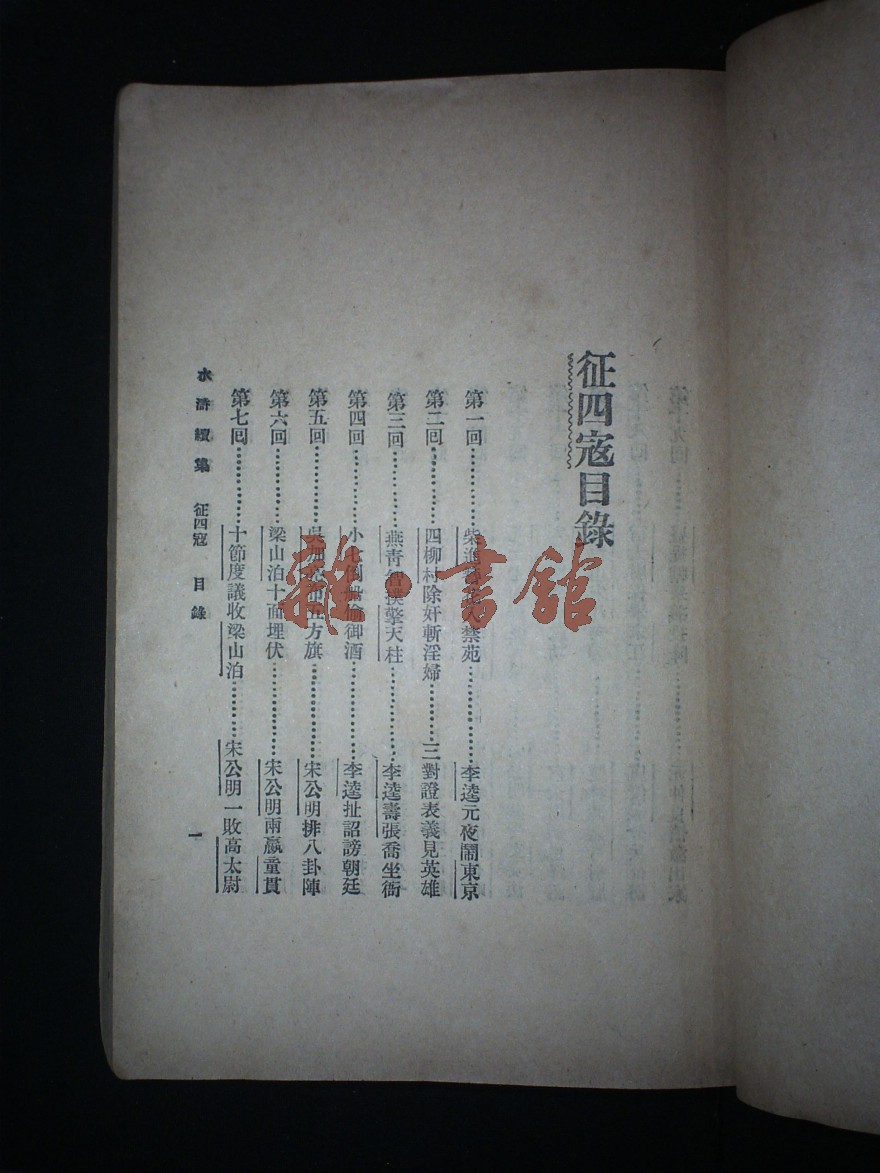 征四寇目錄
第一回…………柴進入禁苑…………李逵元夜鬧東京
第二回…………四柳村除奸斬淫婦…………三對證表義見英雄
第三回…………燕青智撲擎天柱…………李逵壽張喬坐衙
第四回…………小七倒船偷御酒…………李逵扯詔謗朝廷
第五回…………吳加亮布五方旗…………宋公明排八卦陣
第六回…………梁山泊十面埋伏…………宋公明兩贏童貫
第七回…………十節度議收梁山泊…………宋公明一敗高太尉
水滸續集 征四寇 目錄 一
雜·書館